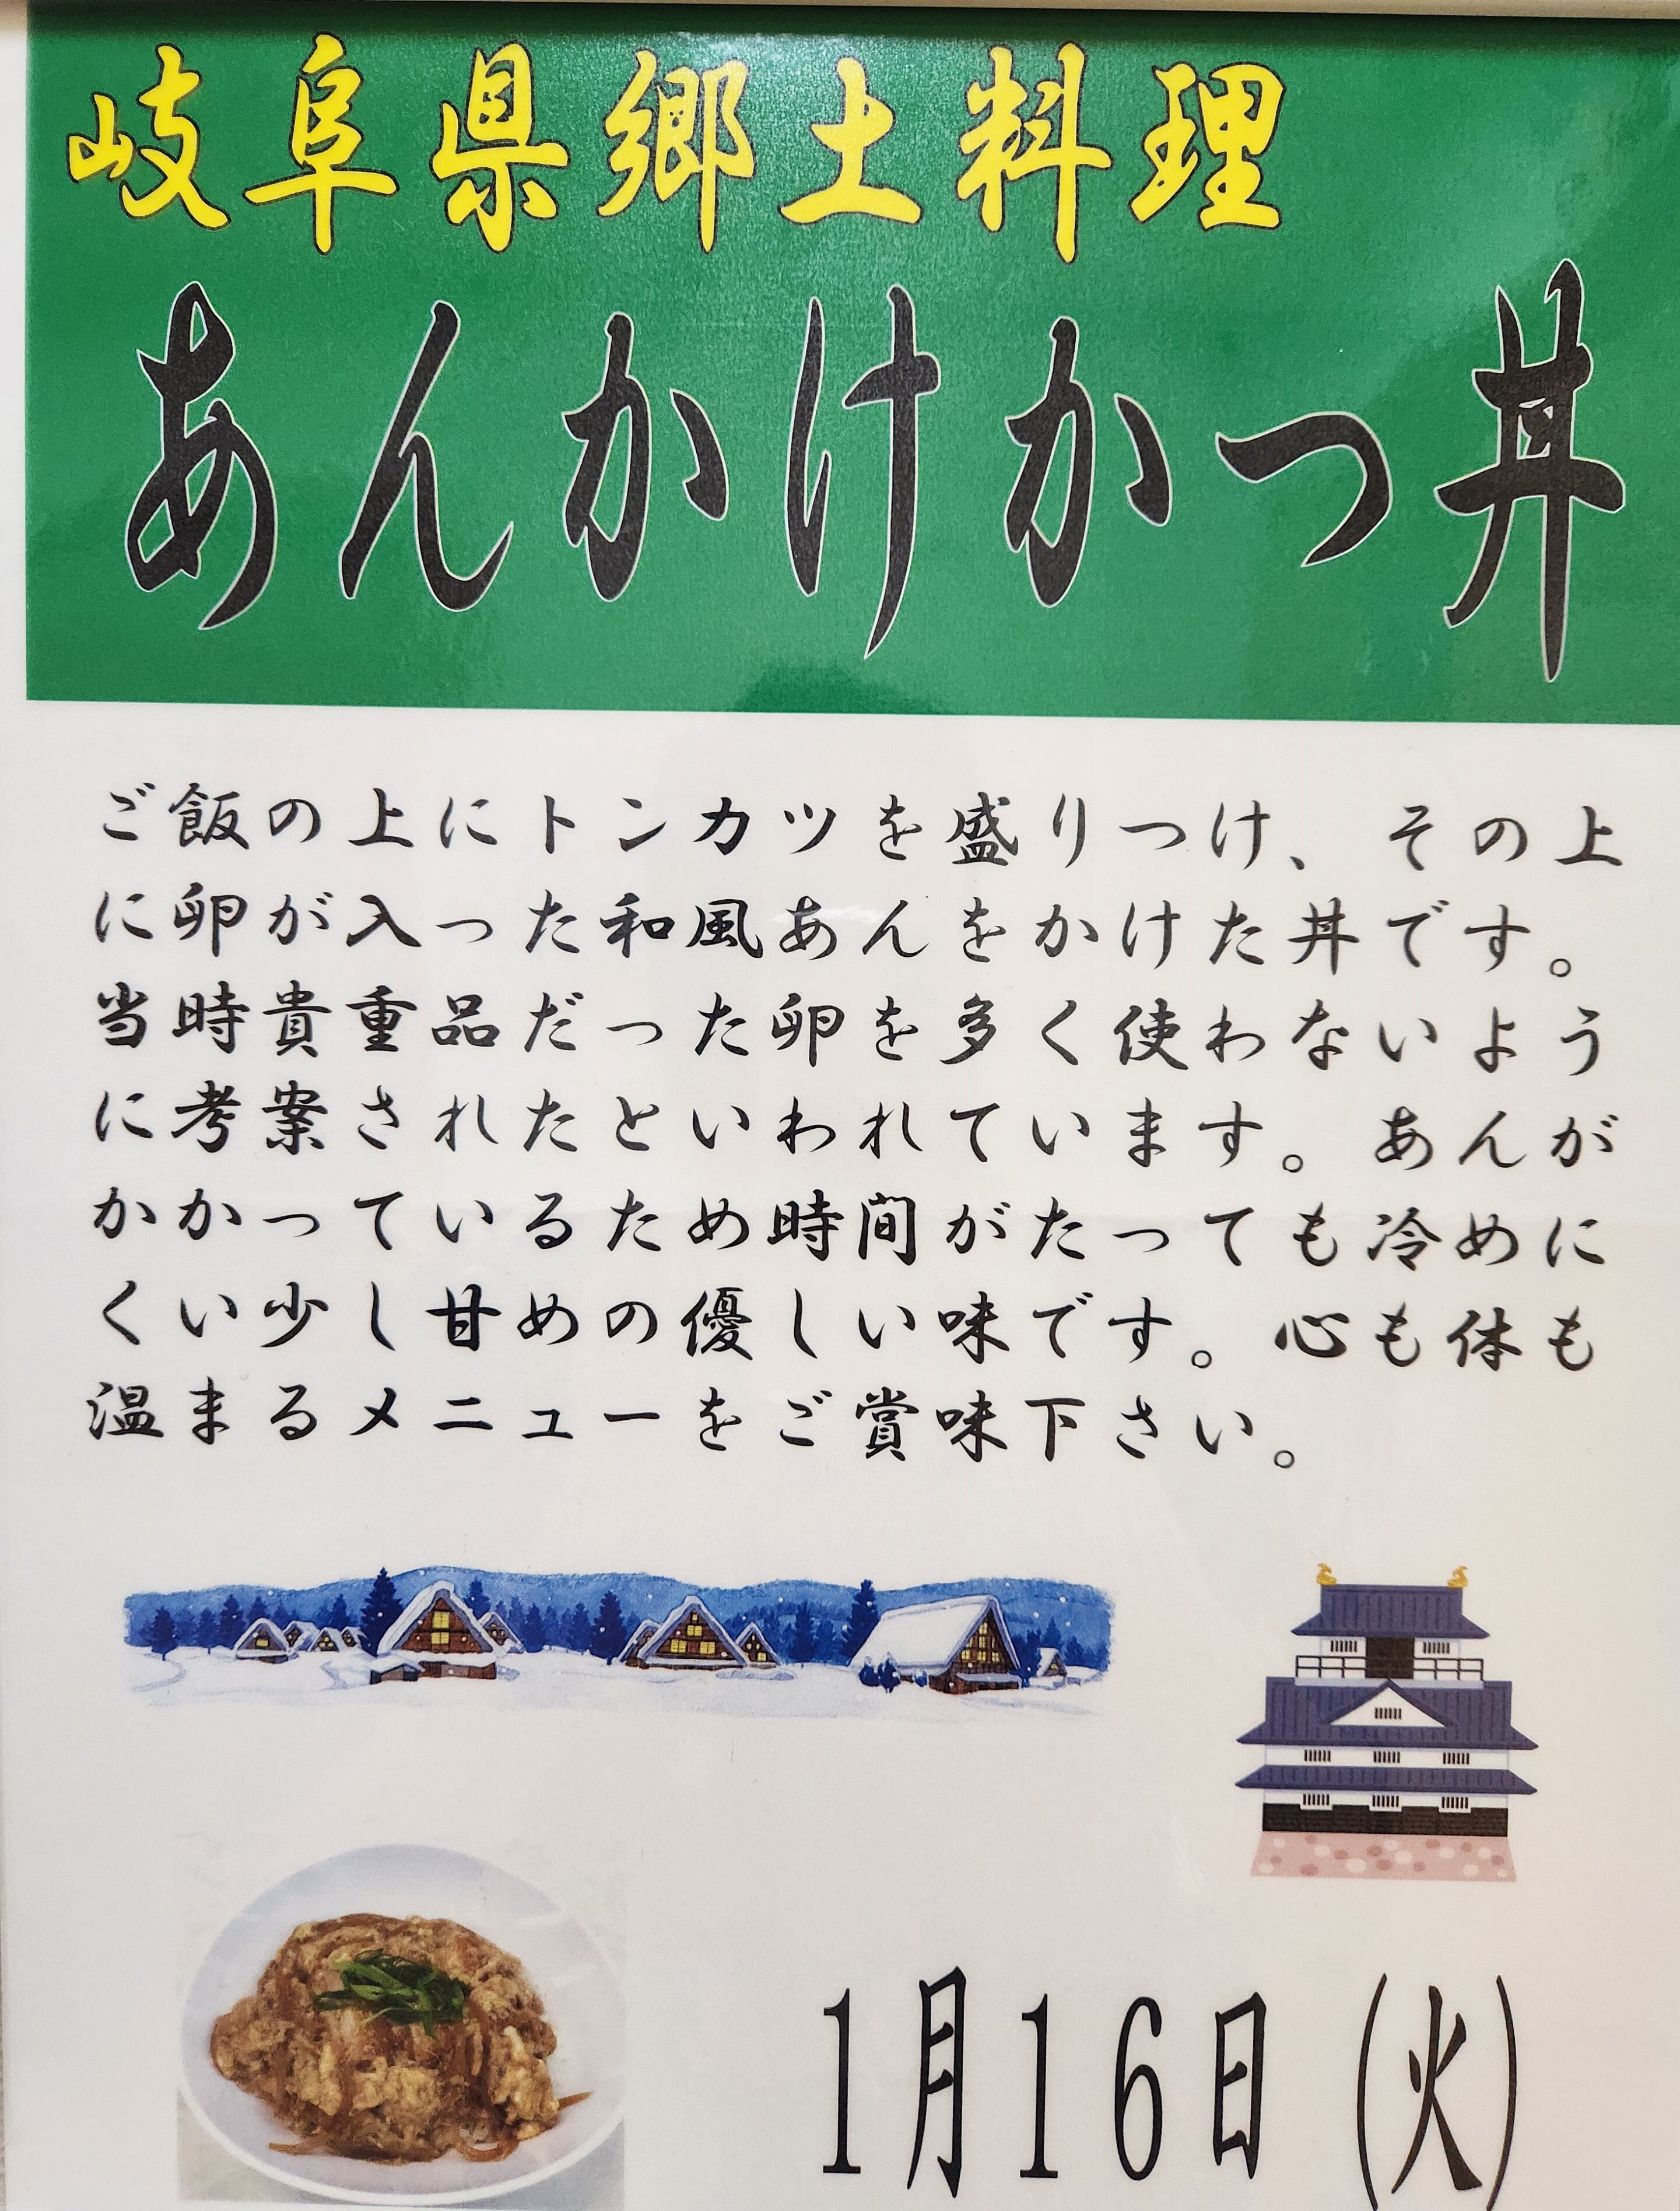 岐阜県郷土料理
あんかけかつ丼
ご飯の上にトンカツを盛りつけ、その上
に卵が入った和風あんをかけた丼です。
当時貴重品だった卵を多く使わないよう
に考案されたといわれています。あんが
かかっているため時間がたっても冷めに
くい少し甘めの優しい味です。心も体も
温まるメニューをご賞味下さい。
1月16日(火)